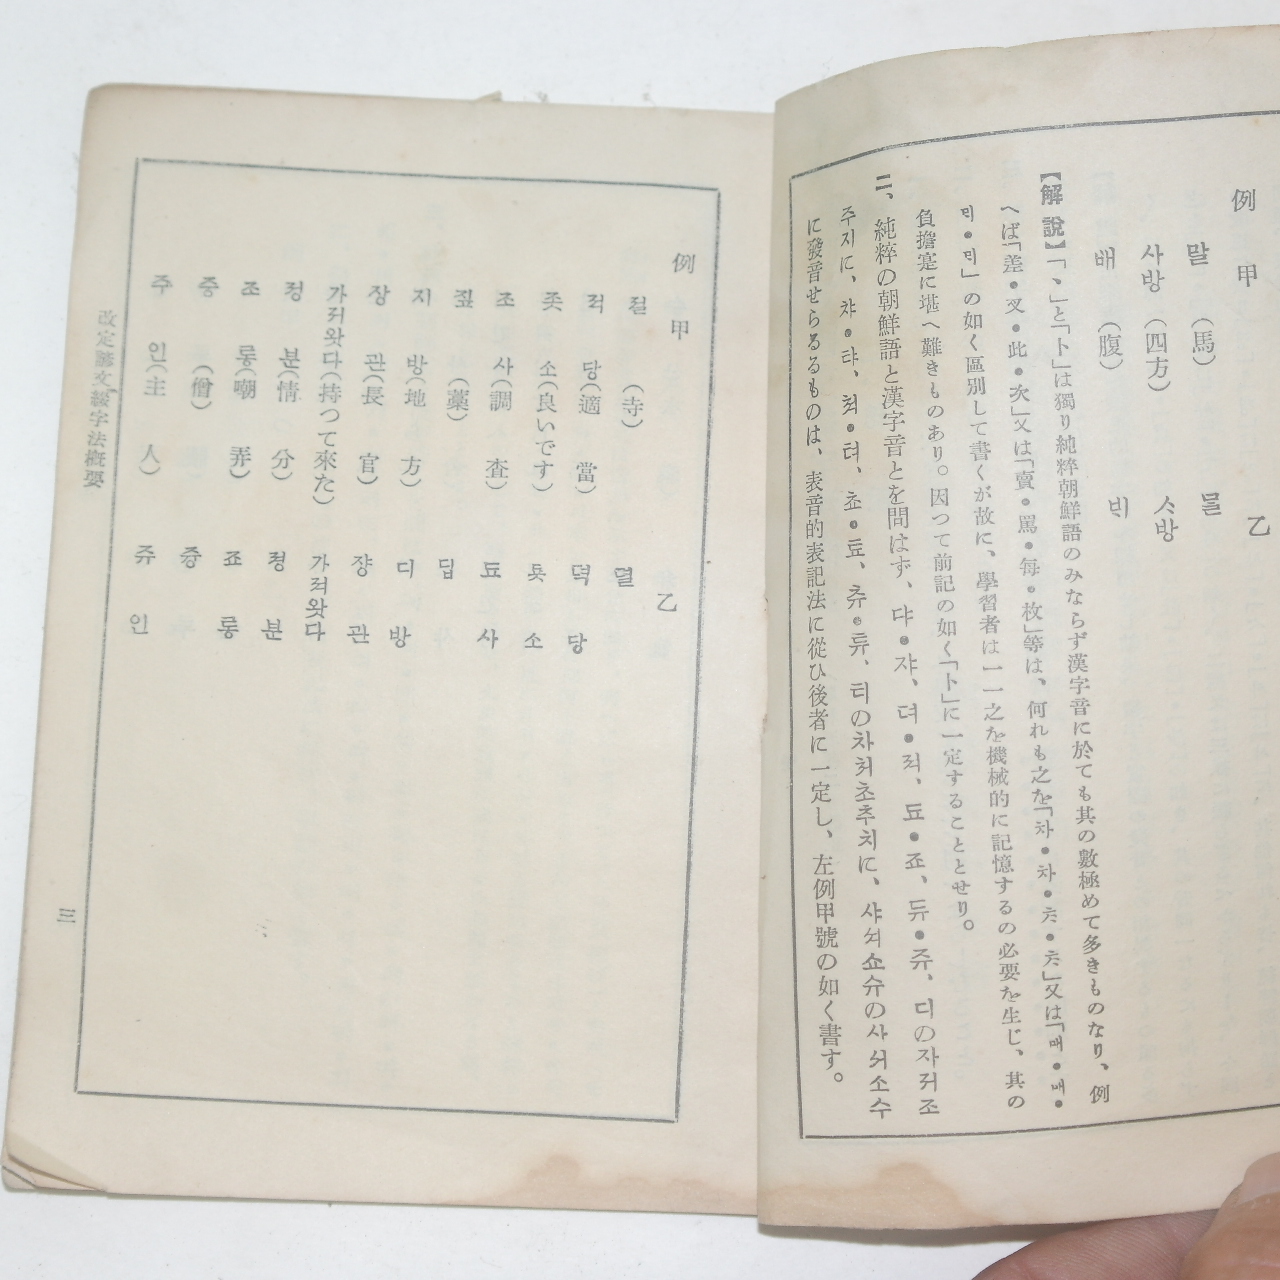 例 甲 乙
말(馬) ᄆᆞᆯ
사방(四方) ᄉᆞ방
배(腹) ᄇᆡ
【解說】「ㆍ」と「ㅏ」は獨り純粹朝鮮語のみならず漢字音に於ても其の數極めて多きものなり、例
へば「差・叉・此・次」又は「賣・罵・每・枚」等は、何れも之を「차・차・ᄎᆞ・ᄎᆞ」又は「매・매・
ᄆᆡ・ᄆᆡ」の如く區別して書くが故に、學習者は一一之を機械的に記憶するの必要を生じ、其の
負擔寔に堪へ難きものあり。因つて前記の如く「ㅏ」に一定することとせり。
二、純粹の朝鮮語と漢字音とを問はず、댜・쟈、뎌・져、됴・죠、듀・쥬、디の자저조
주지に、챠・탸、쳐・텨、쵸・툐、츄・튜、티の차처초추치に、샤셔쇼슈の사서소수
に發音せらるるものは、表音的表記法に從ひ後者に一定し、左例甲號の如く書す。
例 甲 乙
절(寺) 뎔
적당(適當) 뎍당
좃소(良いです) 둇소
조사(調査) 됴사
짚(藁) 딥
지방(地方) 디방
장관(長官) 쟝관
가저왓다(持つて來た) 가져왓다
정분(情分) 졍분
조롱(嘲弄) 죠롱
중(僧) 즁
주인(主人) 쥬인
改定諺文綴字法槪要
三